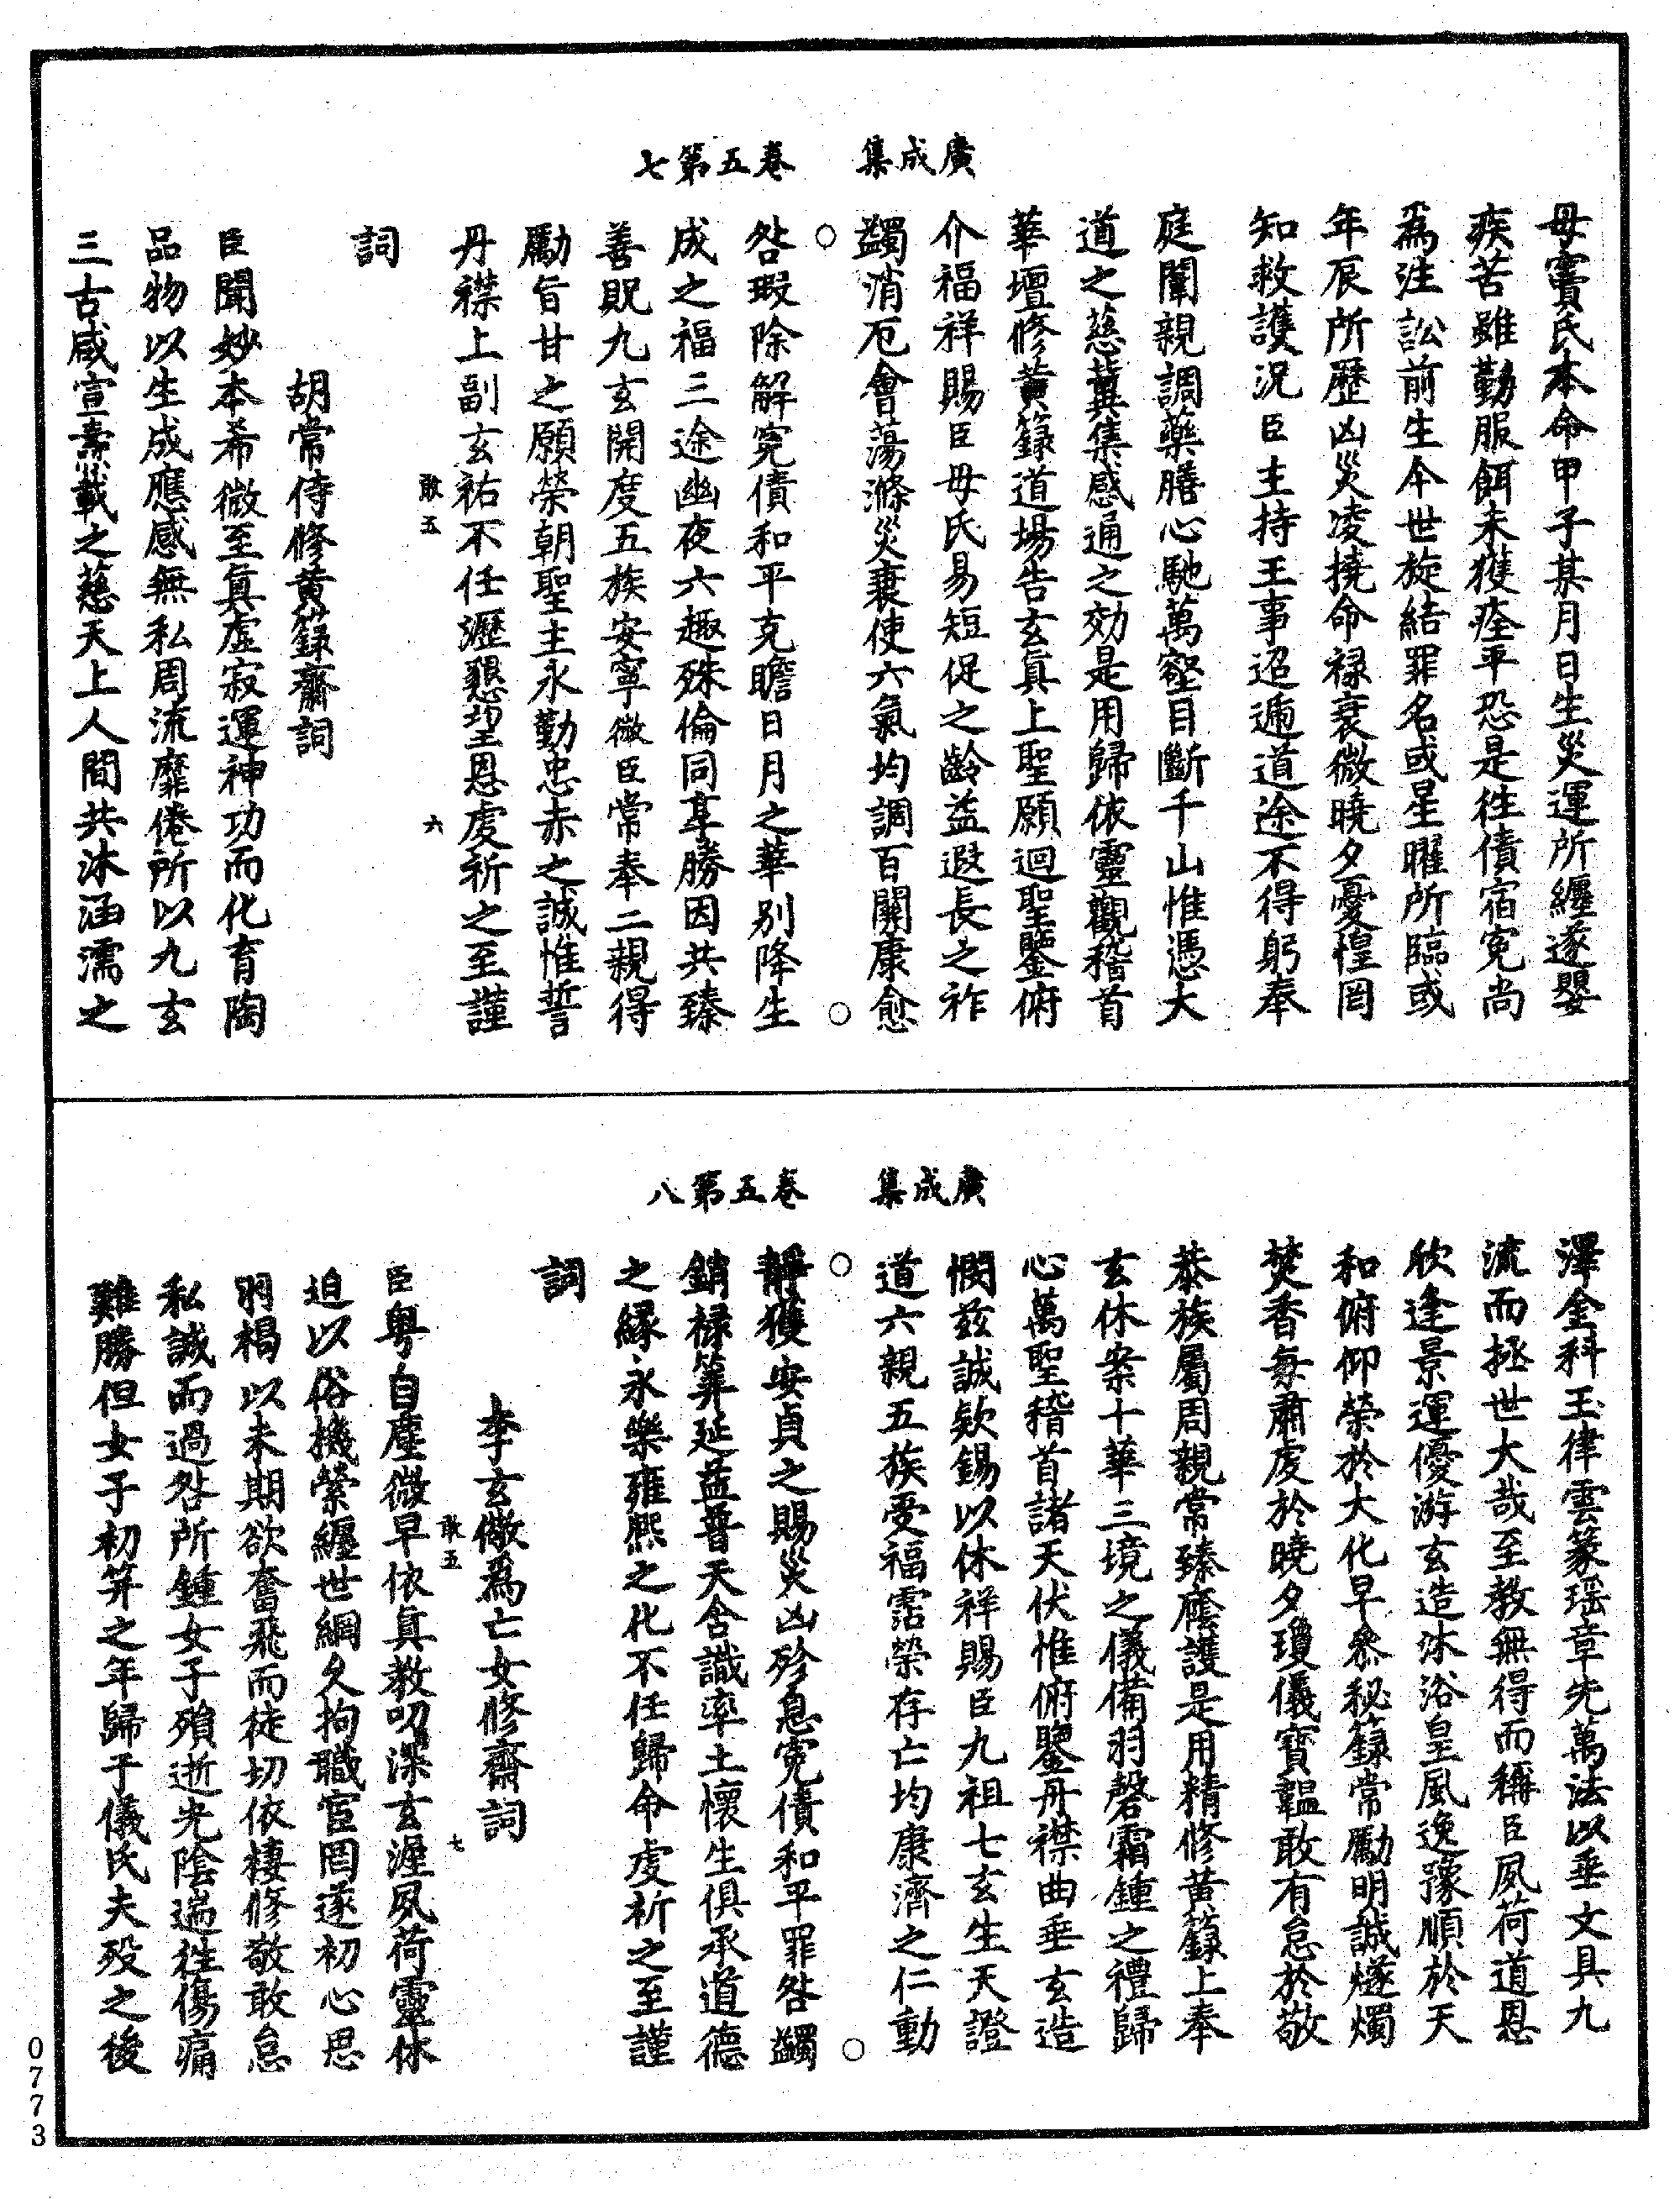 廣成集　卷五第七
母竇氏本命甲子某月日生災運所纏遂嬰
疾苦雖勤服餌未獲痊平恐是往債宿寃尚
爲注訟前生今世旋結罪名或星曜所臨或
年辰所歷凶災凌撓命禄衰微曉夕憂惶罔
知救護況臣主持王事迢遞道途不得躬奉
庭闈親調藥膳心馳萬壑目斷千山惟憑大
道之慈冀集感通之効是用歸依靈觀稽首
華壇修黃籙道場告玄真上聖願迴聖鑒俯
介福祥賜臣母氏易短促之齡益遐長之祚
蠲消厄會蕩滌災衰使六氣均調百關康愈
咎瑕除解寃債和平克瞻日月之華别降生
成之福三途幽夜六趣殊倫同享勝因共臻
善貺九玄開度五族安寧微臣常奉二親得
勵旨甘之願榮朝聖主永勤忠赤之誠惟誓
丹襟上副玄祐不任瀝懇望恩虔祈之至謹
敢五　六
詞
胡常侍修黃籙齋詞
臣聞妙本希微至真虛寂運神功而化育陶
品物以生成應感無私周流靡倦所以九玄
三古咸宣燾載之慈天上人間共沐涵濡之
廣成集　卷五第八
澤金科玉律雲篆瑶章先萬法以垂文具九
流而拯世大哉至教無得而稱臣夙荷道恩
欣逢景運優游玄造沐浴皇風逸豫順於天
和俯仰榮於大化早叅秘籙常勵明誠燧燭
焚香每肅虔於曉夕瓊儀寶韞敢有怠於敬
恭族屬周親常臻廕護是用精修黃籙上奉
玄休案十華三境之儀備羽磬霜鍾之禮歸
心萬聖稽首諸天伏惟俯鑒丹襟曲垂玄造
憫茲誠欵錫以休祥賜臣九祖七玄生天證
道六親五族受福霑榮存亡均康濟之仁動
靜獲安貞之賜災凶殄息寃債和平罪咎蠲
銷禄筭延益普天含識率土懷生俱承道德
之緣永樂雍熙之化不任歸命虔祈之至謹
詞
李玄儆爲亡女修齋詞
敢五　七
臣粤自塵微早依真教叨深玄渥夙荷靈休
迫以俗機縈纏世網久拘職宦罔遂初心思
羽楬以未期欲奮飛而徒切依棲修敬敢怠
私誠而過咎所鍾女子殞逝光陰遄往傷痛
難勝但女子初笄之年歸于儀氏夫歿之後
0773